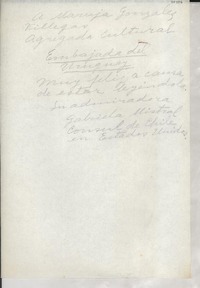 A Maruja Gonzalez
Villegas
Agregada Cultural
Embajada del
Uruguay
muy feliz a causa
de estar leyéndola
su admiradora
Gabriela Mistral
Consul de Chile
en Estados Unidos